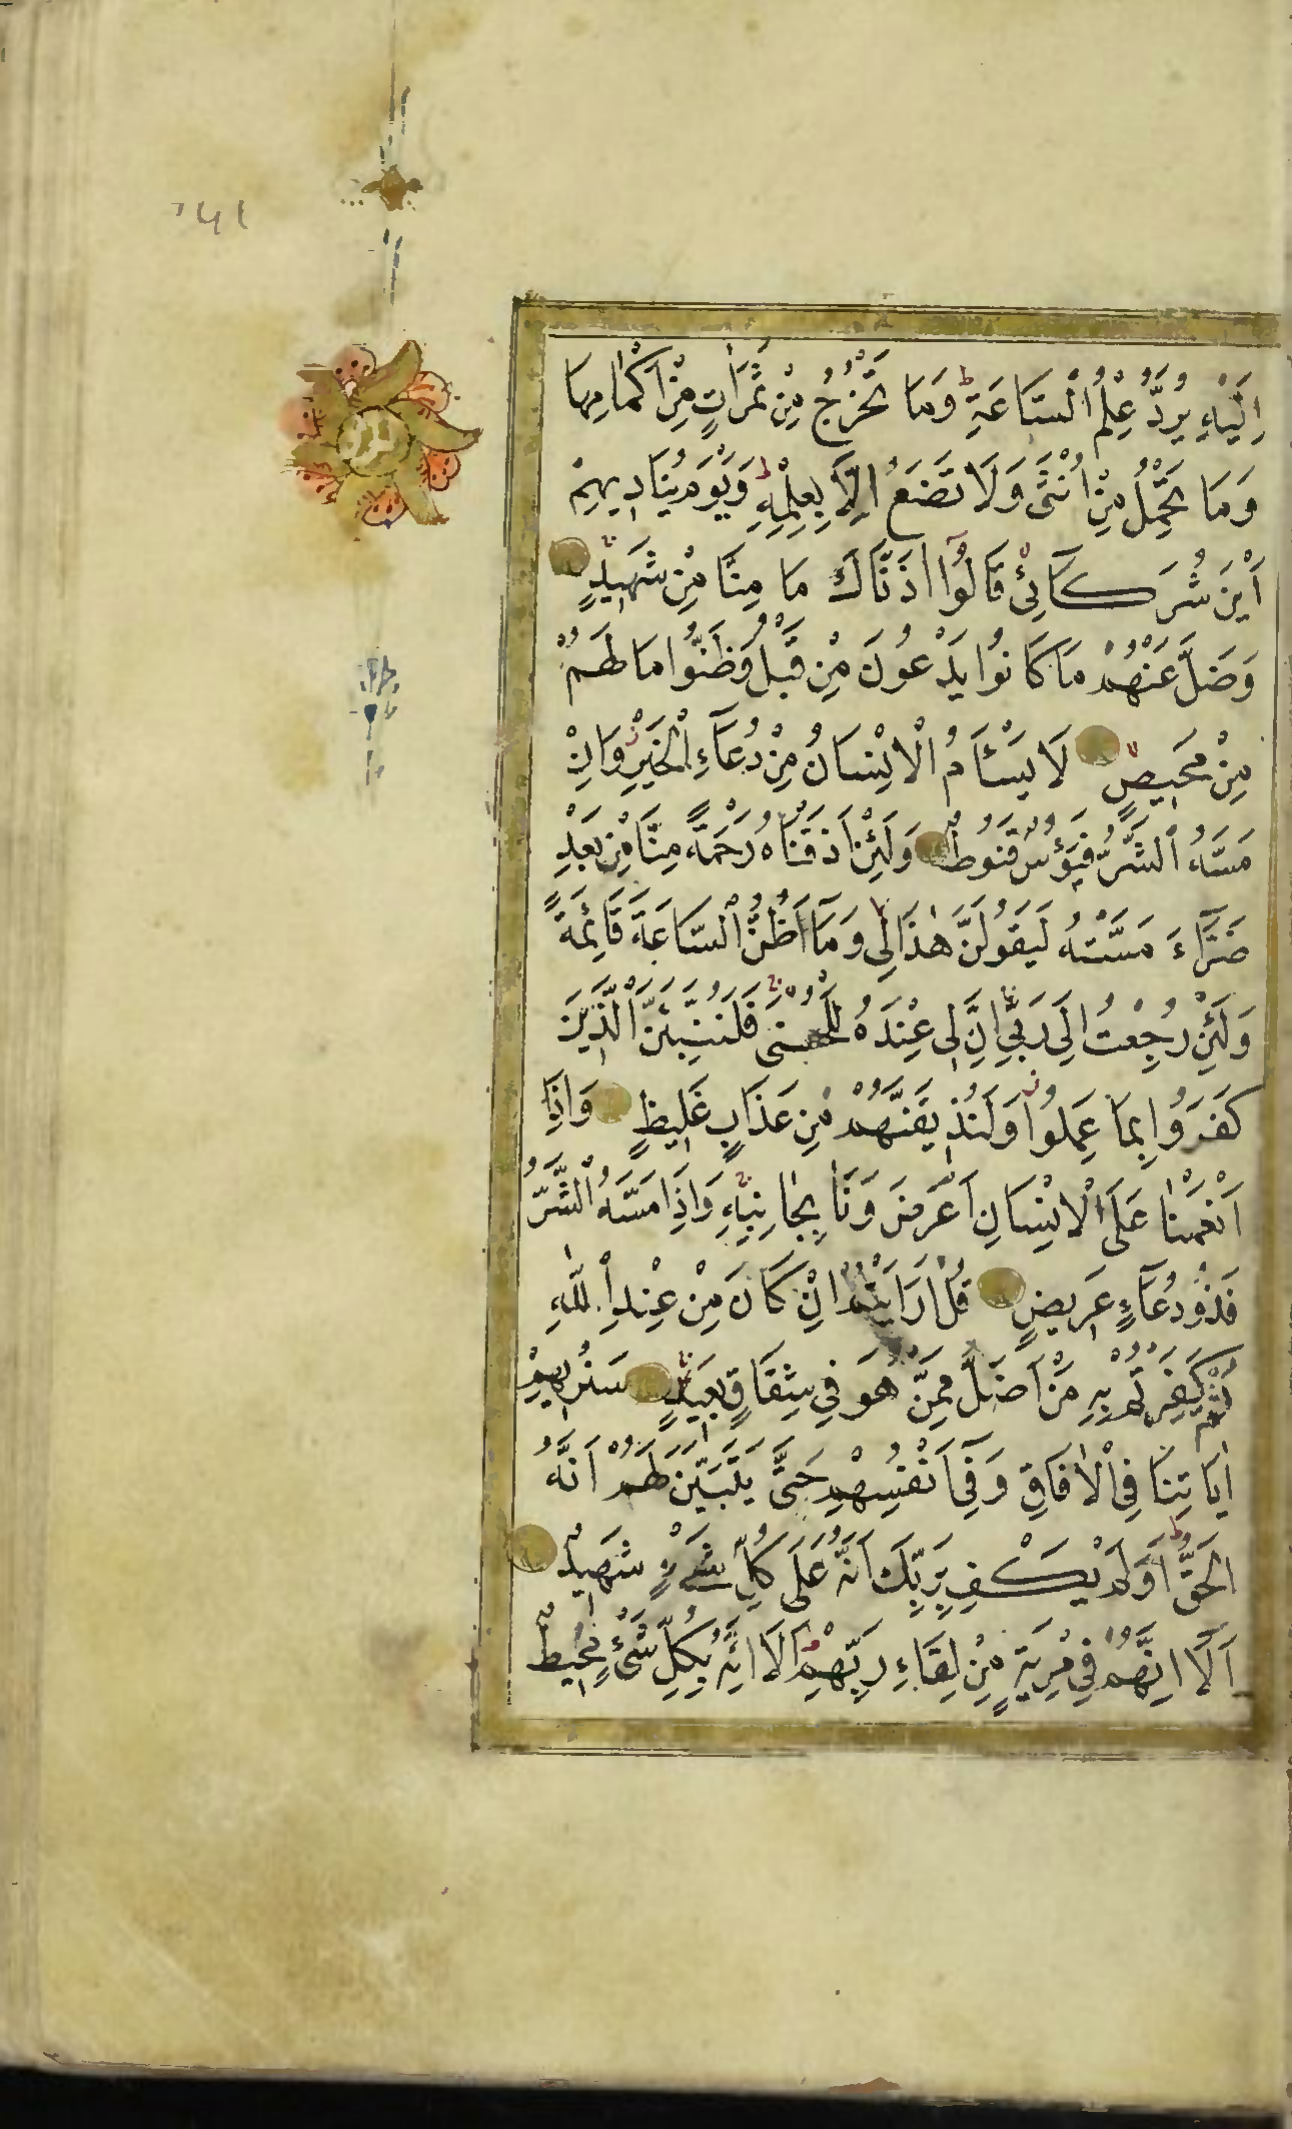 اِلَيْهِ يُرَدُّ عِلْمُ السَّاعَةِ ط وَمَا تَخْرُجُ مِنْ ثَمَرَاتٍ مِنْ اَكْمَامِهَا
وَمَا تَحْمِلُ مِنْ اُنْثٰى وَلَا تَضَعُ اِلَّا بِعِلْمِهِ ط وَيَوْمَ يُنَادِيهِمْ
اَيْنَ شُرَكَآئِي قَالُوٓا اٰذَنَّاكَ مَا مِنَّا مِنْ شَهِيدٍ
وَضَلَّ عَنْهُمْ مَا كَانُوا يَدْعُونَ مِنْ قَبْلُ وَظَنُّوا مَا لَهُمْ
مِنْ مَحِيصٍ لَا يَسْئَامُ الْاِنْسَانُ مِنْ دُعَآءِ الْخَيْرِ وَاِنْ
مَسَّهُ الشَّرُّ فَيَؤُسٌ قَنُوطٌ وَلَئِنْ اَذَقْنَاهُ رَحْمَةً مِنَّا مِنْ بَعْدِ
ضَرَّآءَ مَسَّتْهُ لَيَقُولَنَّ هٰذَا لِي وَمَآ اَظُنُّ السَّاعَةَ قَائِمَةً
وَلَئِنْ رُجِعْتُ اِلٰى رَبِّي اِنَّ لِي عِنْدَهُ لَلْحُسْنٰى فَلَنُنَبِّئَنَّ الَّذِينَ
كَفَرُوا بِمَا عَمِلُوا وَلَنُذِيقَنَّهُمْ مِنْ عَذَابٍ غَلِيظٍ وَاِذَا
اَنْعَمْنَا عَلَى الْاِنْسَانِ اَعْرَضَ وَنَاٰ بِجَانِبِهِ وَاِذَا مَسَّهُ الشَّرُّ
فَذُو دُعَآءٍ عَرِيضٍ قُلْ اَرَاَيْتُمْ اِنْ كَانَ مِنْ عِنْدِ اللّٰهِ
ثُمَّ كَفَرْتُمْ بِهِ مَنْ اَضَلُّ مِمَّنْ هُوَ فِي شِقَاقٍ بَعِيدٍ سَنُرِيهِمْ
اٰيَاتِنَا فِي الْاٰفَاقِ وَفِيٓ اَنْفُسِهِمْ حَتّٰى يَتَبَيَّنَ لَهُمْ اَنَّهُ
الْحَقُّ ط اَوَلَمْ يَكْفِ بِرَبِّكَ اَنَّهُ عَلٰى كُلِّ شَيْءٍ شَهِيدٌ
اَلَآ اِنَّهُمْ فِي مِرْيَةٍ مِنْ لِقَاءِ رَبِّهِمْ اَلَا اِنَّهُ بِكُلِّ شَيْءٍ مُحِيطٌ